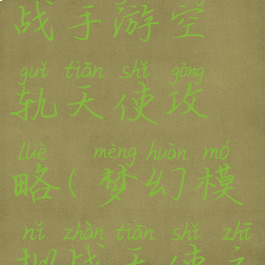 战手游空
guǐ tiān shǐ gōng
轨天使攻
lüè mèng huàn mó
略(梦幻模
nǐ zhàn tiān shǐ zhī
拟战天使之